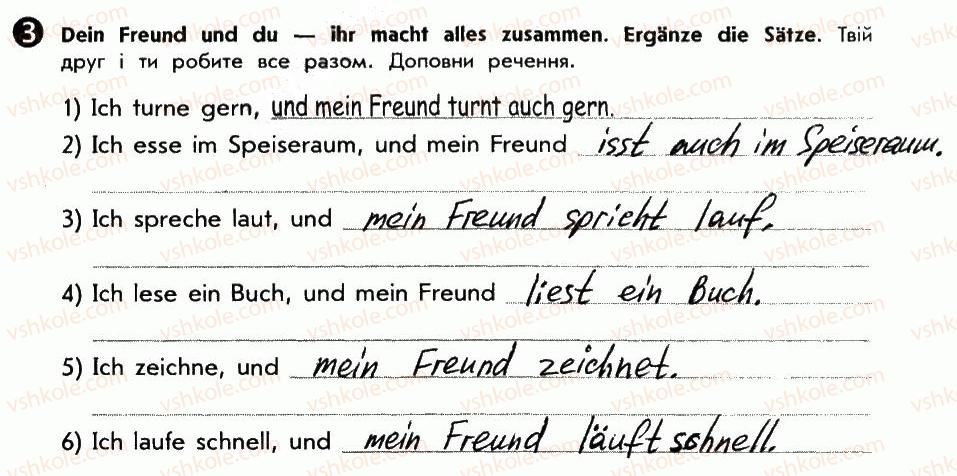 3 Dein Freund und du — ihr macht alles zusammen. Ergänze die Sätze. Твій
друг і ти робите все разом. Доповни речення.
1) Ich turne gern, und mein Freund turnt auch gern.
2) Ich esse im Speiseraum, und mein Freund isst auch im Speiseraum.
3) Ich spreche laut, und mein Freund spricht lauf.
4) Ich lese ein Buch, und mein Freund liest ein Buch.
5) Ich zeichne, und mein Freund zeichnet.
6) Ich laufe schnell, und mein Freund läuft schnell.